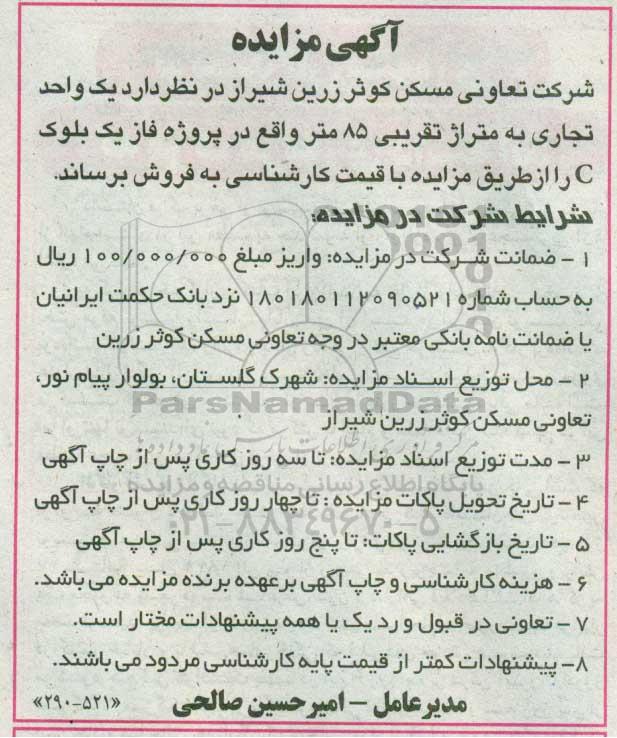 آگهی مزایده
شرکت تعاونی مسکن کوثر زرین شیراز در نظر دارد یک واحد
تجاری به متراژ تقریبی ۸۵ متر واقع در پروژه فاز یک بلوک
C را از طریق مزایده با قیمت کارشناسی به فروش برساند.
شرایط شرکت در مزایده:
۱ - ضمانت شرکت در مزایده: واریز مبلغ ۱۰۰/۰۰۰/۰۰۰ ریال
به حساب شماره ۱۸۰۱۸۰۱۱۲۰۹۰۵۲۱ نزد بانک حکمت ایرانیان
یا ضمانت نامه بانکی معتبر در وجه تعاونی مسکن کوثر زرین
۲ - محل توزیع اسناد مزایده: شهرک گلستان، بولوار پیام نور،
تعاونی مسکن کوثر زرین شیراز
ParsNamadData
۳ - مدت توزیع اسناد مزایده: تا سه روز کاری پس از چاپ آگهی
پایگاه اطلاع رسانی مناقصه و مزایده
۴ - تاریخ تحویل پاکات مزایده : تا چهار روز کاری پس از چاپ آگهی
۰۲۱-۸۸۳۴۹۶۷۰-۵
۵ - تاریخ بازگشایی پاکات: تا پنج روز کاری پس از چاپ آگهی
۶ - هزینه کارشناسی و چاپ آگهی بر عهده برنده مزایده می باشد.
۷ - تعاونی در قبول و رد یک یا همه پیشنهادات مختار است.
۸- پیشنهادات کمتر از قیمت پایه کارشناسی مردود می باشند.
مدیرعامل - امیرحسین صالحی
«۲۹۰-۵۲۱»